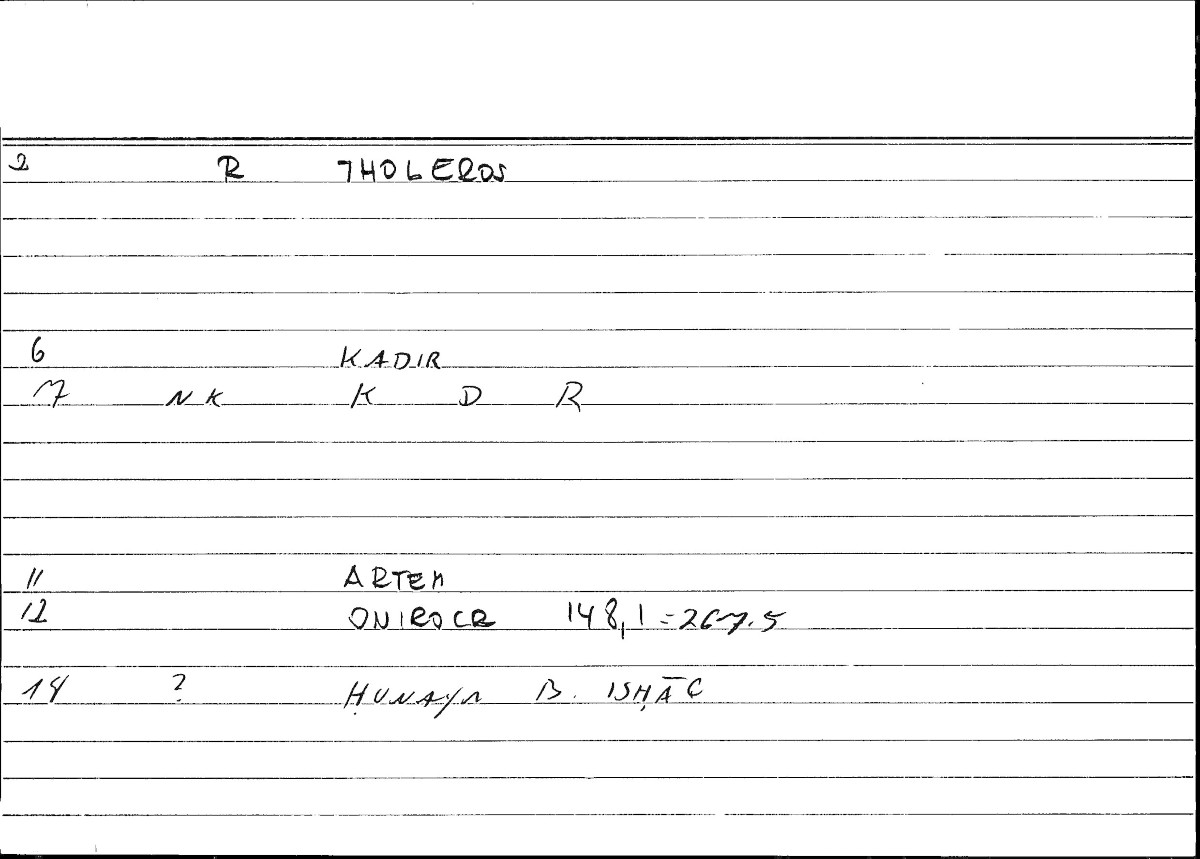 2 R THOLEROS
6 KADIR
7 NK K D R
11 ARTEM
12 ONIROCR 148,1 = 267.5
14 ? ḤUNAYN B. ISḤĀC